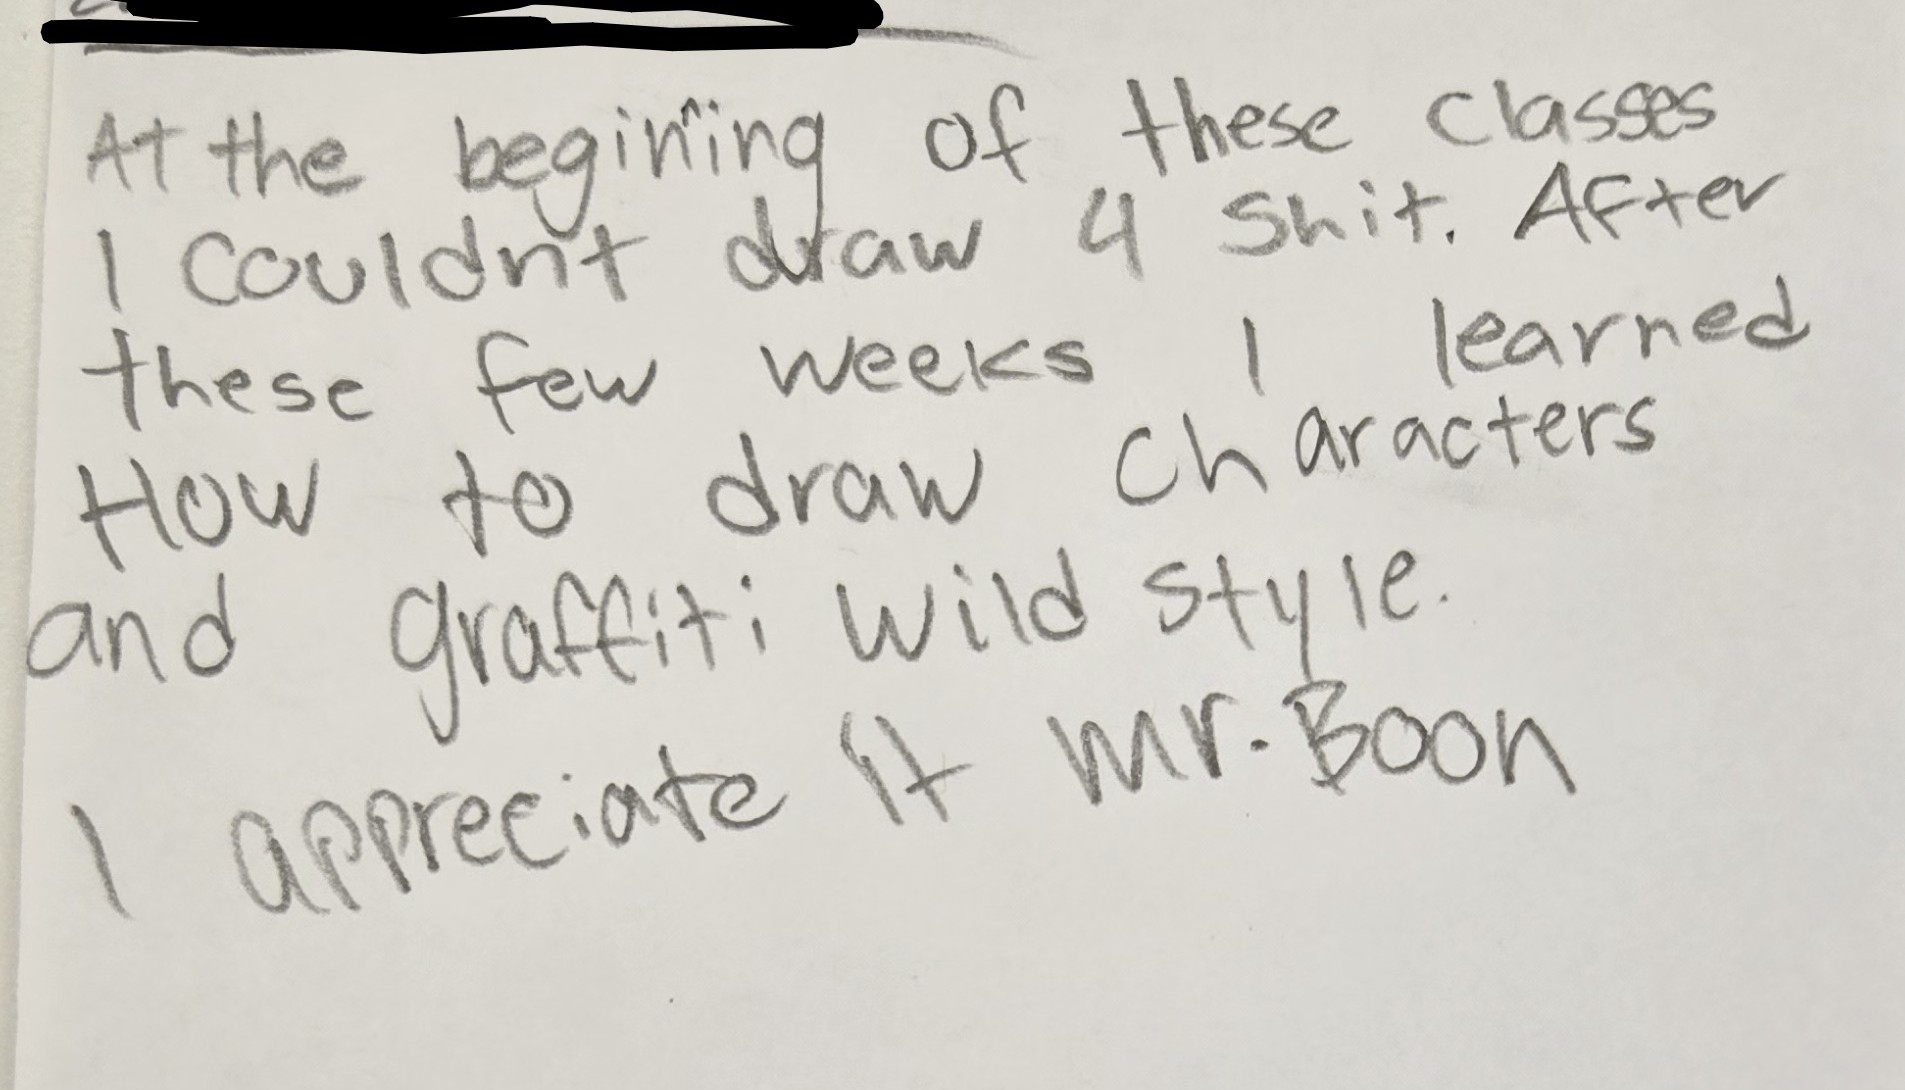 At the begining of these classes
I couldn't draw 4 shit. After
these few weeks I learned
How to draw characters
and graffiti wild style.
I appreciate it mr. Boon